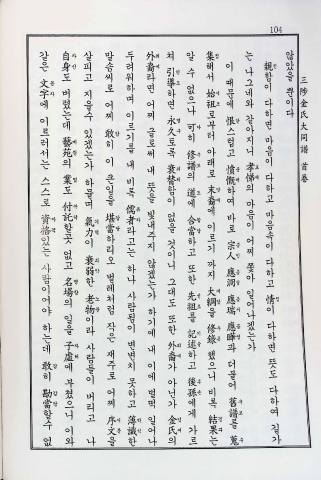 104
三陟金氏大同譜 首卷
않았을 뿐이다
親함이 다하면 마음이 다하고 마음속이 다하고 情이 다하면 뜻도 다하여 길가
는 나그네와 같아지니 孝悌의 마음이 어찌 쫓아 일어나겠는가
이 때문에 恨스럽고 憤慨하여 바로 宗人 應洞 應瑞 과 더불어 舊譜를 蒐
集해서 始祖로부터 아래로 末裔에 이르기 까지 大綱을 修錄 했으니 비록 結果는
알 수 없으나 可히 修譜의 道에 合當하고 또한 先祖를 記述하고 後孫에게 가르
쳐 引導하면 永久토록 衰替함이 없을 것이니 그대도 또한 外裔가 아닌가 金氏의
外裔라면 어찌 글로써 내 뜻을 빛내주지 않겠는가 하기에 내 이에 벌떡 일어나
두려워하며 이르기를 내 비록 儒者라고는 하나 사람됨이 변변치 못하고 薄識한
말솜씨로써 어찌 敢히 이 큰일을 堪當하리오 벌레처럼 작은 재주로 어찌 序文을
살피고 지을수 있겠는가 하물며 氣力이 衰弱한 老物이라 사람들이 버리고 나
自身도 버렸는데 藝苑의 業도 付託할곳 없고 名場의 일을 子虛에 부쳤으니 이와
같은 文字에 이르러서는 스스로 資格있는 사람이어야 하는데 敢히 勘當할수 없